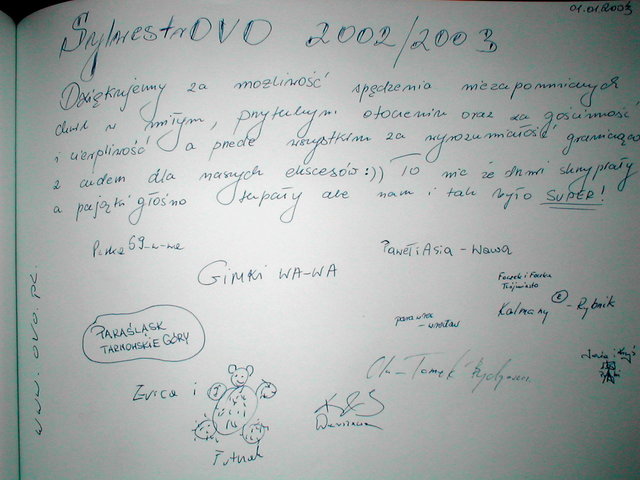 01.01.2003
SylwestrOVO 2002/2003
Dziękujemy za możliwość spędzenia niezapomnianych
chwil w miłym, przytulnym otoczeniu oraz za gościnność
i cierpliwość a przede wszystkim za wyrozumiałość graniczącą
z cudem dla naszych ekscesów:)) To nic że drzwi skrzypiały
a pajączki głośno tupały ale nam i tak było SUPER!
Paweł i Asia - Wawa
GIMKI WA-WA
Kalmany - Rybnik
para wrea
- wrocław
PARAŚLĄSK
TARNOWSKIE GÓRY
Ola - Tomek Bydgoszcz
i
K&S
Warszawa
www.ovo.pl